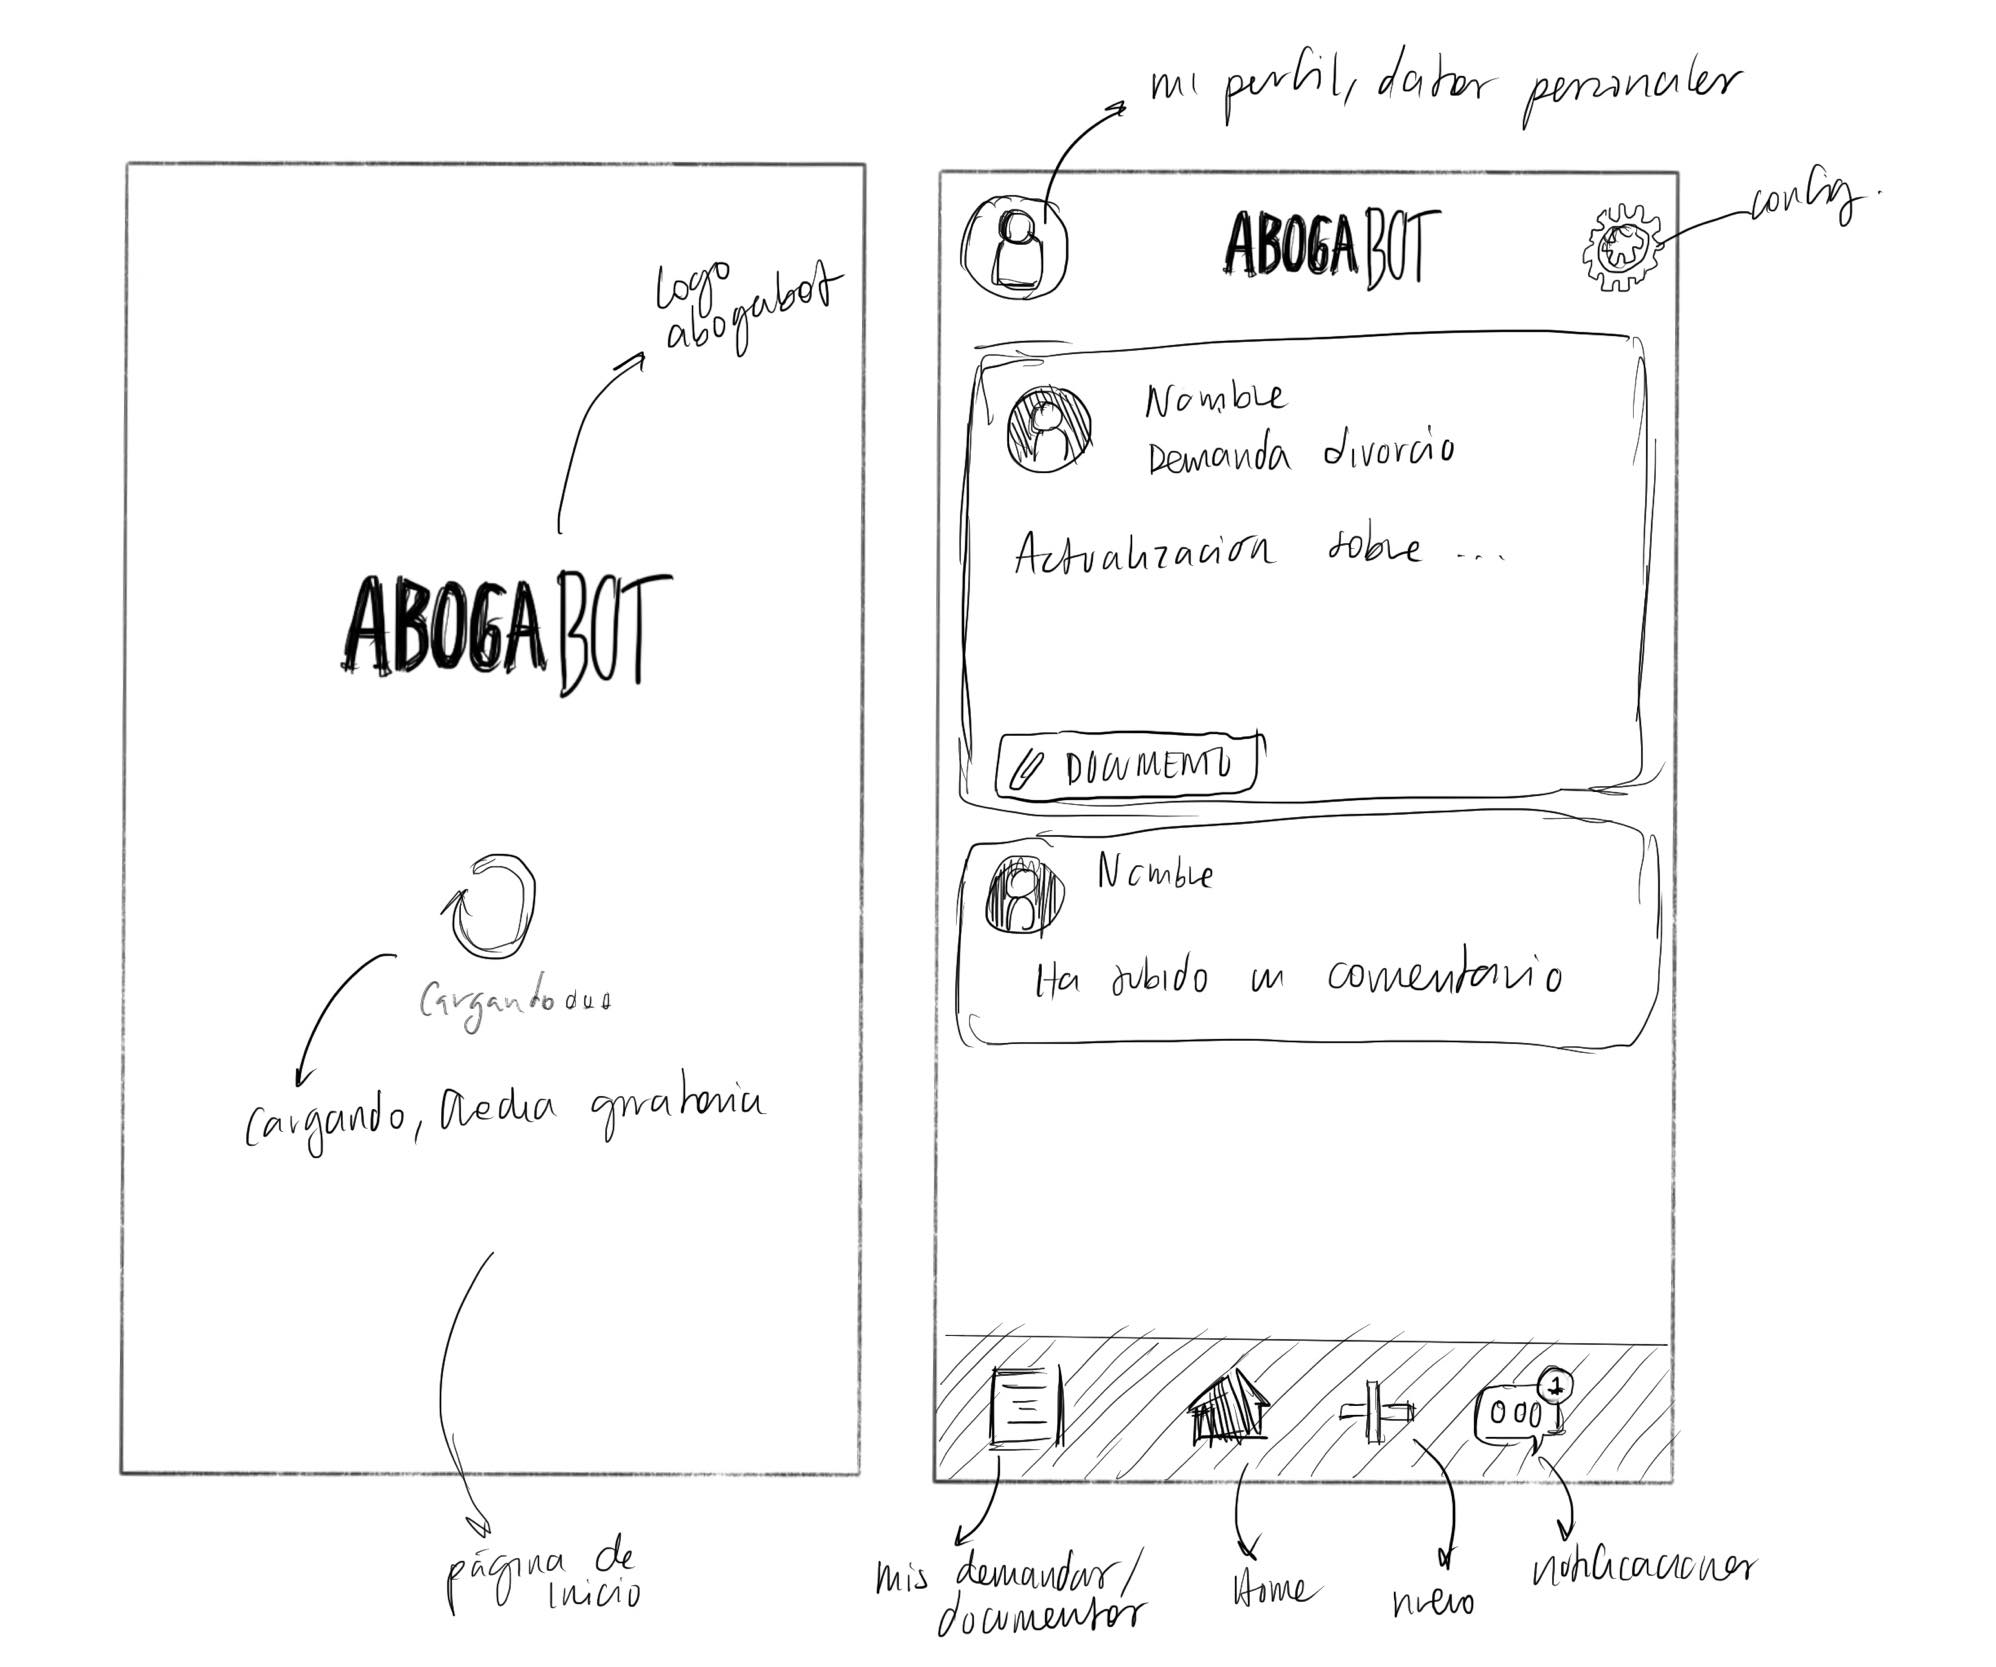 logo
abogabot
ABOGABOT
Cargando...
Cargando, flecha giratoria
página de
inicio
mi perfil, datos personales
config.
ABOGABOT
Nombre
Demanda divorcio
Actualización sobre ...
DOCUMENTO
Nombre
Ha subido un comentario
1
mis demandas/
documentos
Home
nuevo
notificaciones